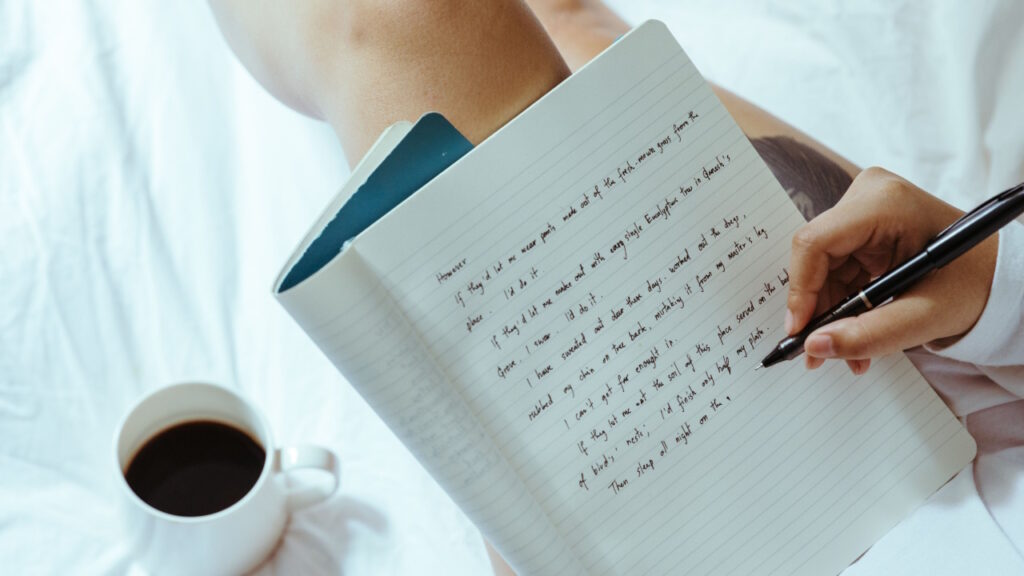 However
If they'd let me wear pants made out of the fresh-mown grass from the
place. I'd do it
If they'd let me make out with every single Eucalyptus tree in
Grove, I swear. I'd do it.
I have sweated out dear these days, worked out the dregs,
rubbed my chin on tree bark, mistaking it from my mother's leg
I can't get far enough in.
If they let me eat the soil of this place served on the
of birds' nests; I'd finish only half my plate.
Then sleep all night on the